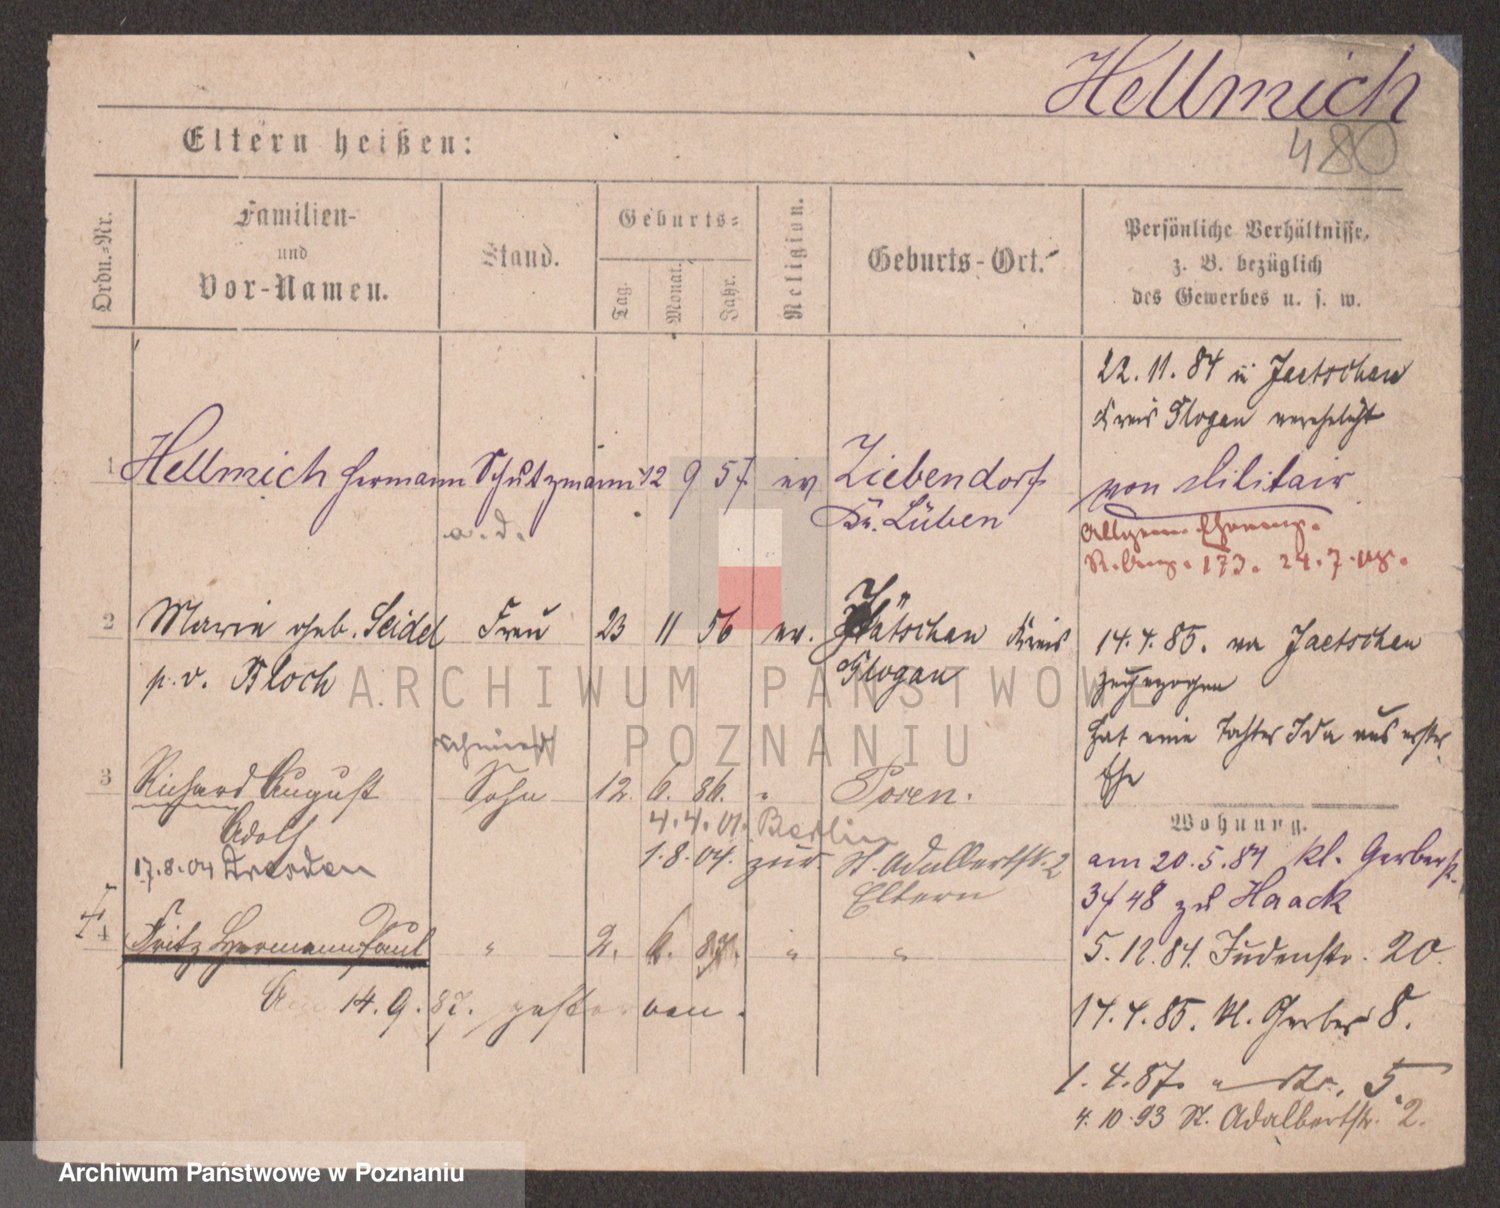 Hellmich
480
Eltern heißen:
Ordn.-Nr.
Familien-
und
Vor-Namen.
Stand.
Geburts-
Tag.
Monat.
Jahr.
Religion.
Geburts-Ort.
Persönliche Verhältnisse,
z. B. bezüglich
des Gewerbes u. s. w.
22. 11. 84 in Jaetschau
Kreis Glogau verehelicht
1 Hellmich Hermann Schutzmann 12 9 57 ev Ziebendorf
Kr. Lüben
a. D.
von Militair
173. 24.7.
2 Marie geb. Seidel Frau 23 11 56 ev. Jätschau Kreis
Glogau
p. v. Bloch
14.4.85. von Jaetschau
zugezogen
hat eine Tochter Ida aus erster
Ehe
3 Richard August Sohn 12. 6. 86. " Posen.
Adolf
17.8.04 Dresden
4.4.01. Berlin
1.8.04. zur. St. Adalbertstr. 2
Eltern
Wohnung.
am 20.5.84 kl. Gerberstr.
3/48 zu Haack
5.12.84. Judenstr. 20.
4 Fritz Hermann Paul " 2. 6. 87. " "
14.9.87. gestorben.
14.4.85. kl. Gerber 8.
1.4.87. " Str. 5.
4.10.93 St. Adalbertstr. 2.
ARCHIWUM PAŃSTWOWE
W POZNANIU
Archiwum Państwowe w Poznaniu